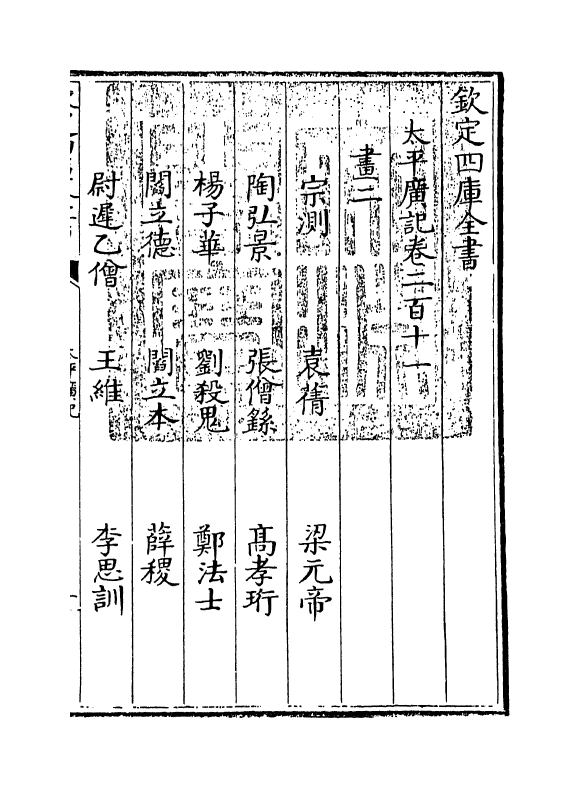 欽定四庫全書
太平廣記卷二百十一
畫二
宗測 袁蒨 梁元帝
陶弘景 張僧繇 髙孝珩
楊子華 劉殺鬼 鄭法士
閻立德 閻立本 薛稷
尉遲乙僧 王維 李思訓
太平廣記